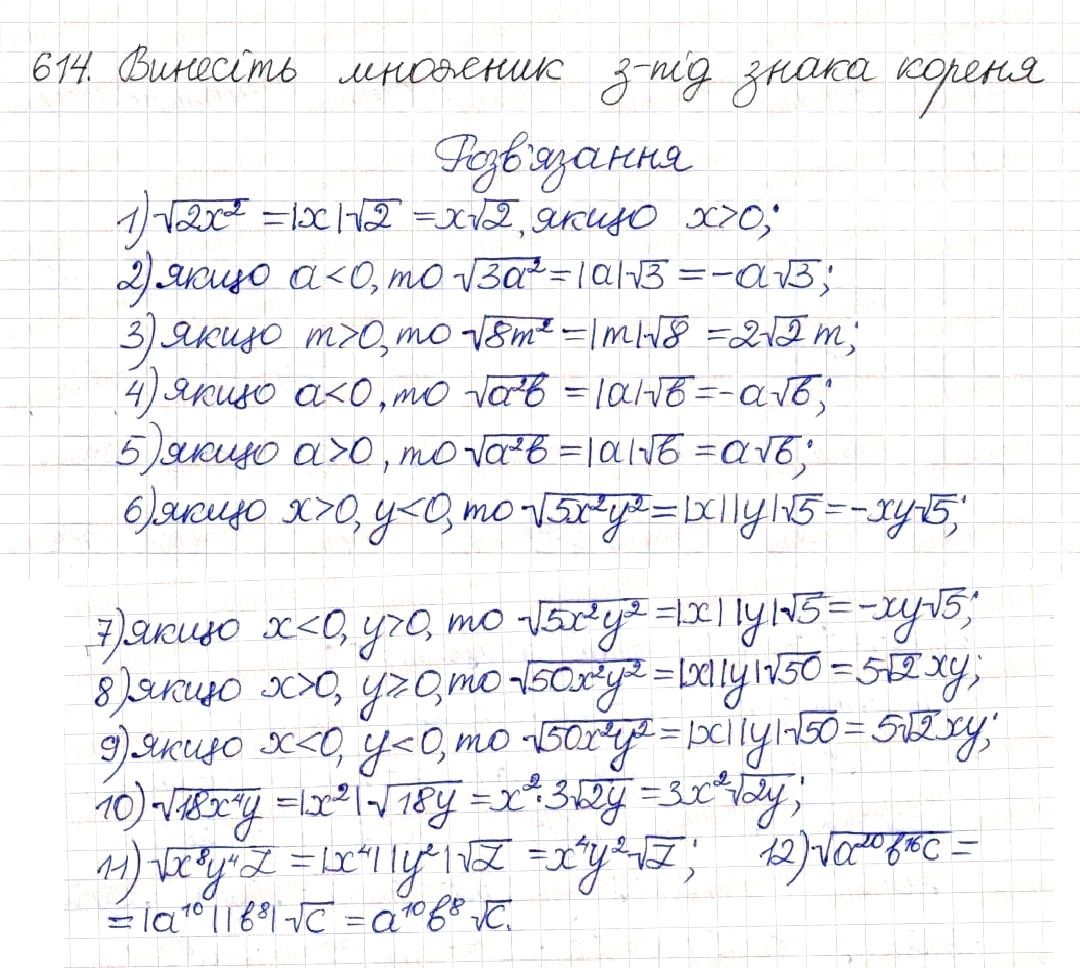 614. Винесіть множеник з-під знака кореня
Розв'язання
1) √2x² = |x|√2 = x√2, якщо x>0;
2) якщо a<0, то √3a² = |a|√3 = -a√3;
3) якщо m>0, то √8m² = |m|√8 = 2√2 m;
4) якщо a<0, то √a²b = |a|√b = -a√b;
5) якщо a>0, то √a²b = |a|√b = a√b;
6) якщо x>0, y<0, то √5x²y² = |x||y|√5 = -xy√5;
7) якщо x<0, y>0, то √5x²y² = |x||y|√5 = -xy√5;
8) якщо x>0, y≥0, то √50x²y² = |x||y|√50 = 5√2 xy;
9) якщо x<0, y<0, то √50x²y² = |x||y|√50 = 5√2 xy;
10) √18x⁴y = |x²|√18y = x²·3√2y = 3x²√2y;
11) √x⁸y⁴z = |x⁴||y²|√z = x⁴y²√z; 12) √a²⁰b¹⁶c =
= |a¹⁰||b⁸|√c = a¹⁰b⁸√c.